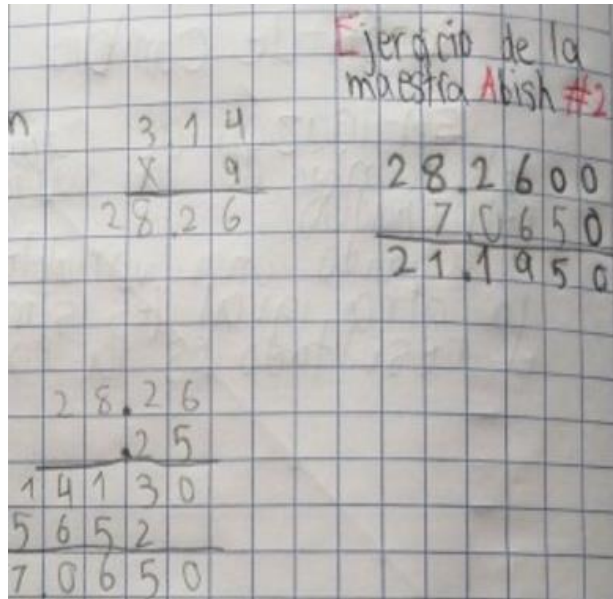 Ejercicio de la
maestra Abish #2
n
3 1 4
X 9
2 8.2 6
2 8.2 6 0 0
7.0 6 5 0
2 1.1 9 5 0
2 8.2 6
.2 5
1 4 1 3 0
5 6 5 2
7.0 6 5 0